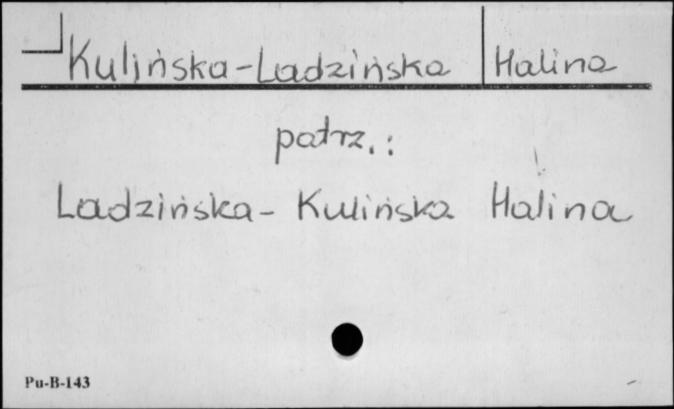 Kulińska-Ladzińska Halina
patrz.:
Ladzińska- Kulińska Halina
Pu-B-143